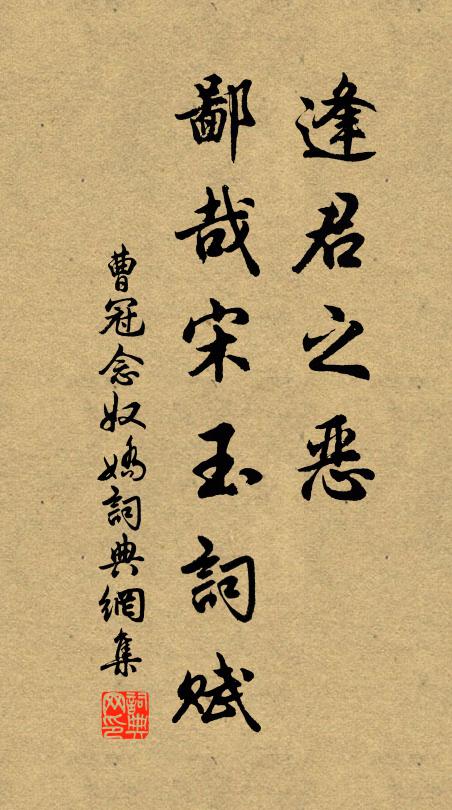 逢君之恶
鄙哉宋玉詞赋
曹冠念奴嬌詞典網集
詞典網印